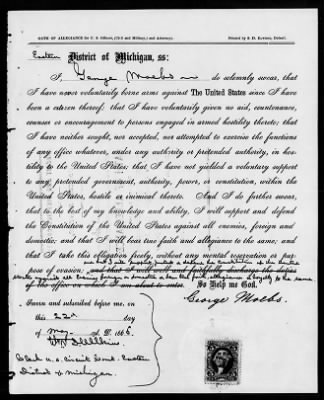 OATH OF ALLEGIANCE for U. S. Officers, (Civil and Military,) and Attorneys.
Eastern District of Michigan, ss:
I, George Moebs do solemnly swear, that
I have never voluntarily borne arms against The United States since I have
been a citizen thereof; that I have voluntarily given no aid, countenance,
counsel or encouragement to persons engaged in armed hostility thereto; that I
have neither sought, nor accepted, nor attempted to exercise the functions
of any office whatever, under any authority or pretended authority, in hos-
tility to the United States; that I have not yielded a voluntary support
to any pretended government, authority, power, or constitution, within the
United States, hostile or inimical thereto. And I do further swear,
that to the best of my knowledge and ability, I will support and defend
the Constitution of the United States against all enemies, foreign and
domestic; and that I will bear true faith and allegiance to the same; and
that I take this obligation freely, without any mental reservation or pur-
pose of evasion; and that I will support protect & defend the Constitution of the United
and that I will well and faithfully discharge the duties
States against all enemies foreign & domestic & bear true faith allegiance & loyalty to the same
of the office on which I am about to enter. So Help me God.
George Moebs
Sworn and subscribed before me, on
this 22d day
of May A. D. 1866
Clerk U. S. Circuit Court Eastern
District of Michigan.